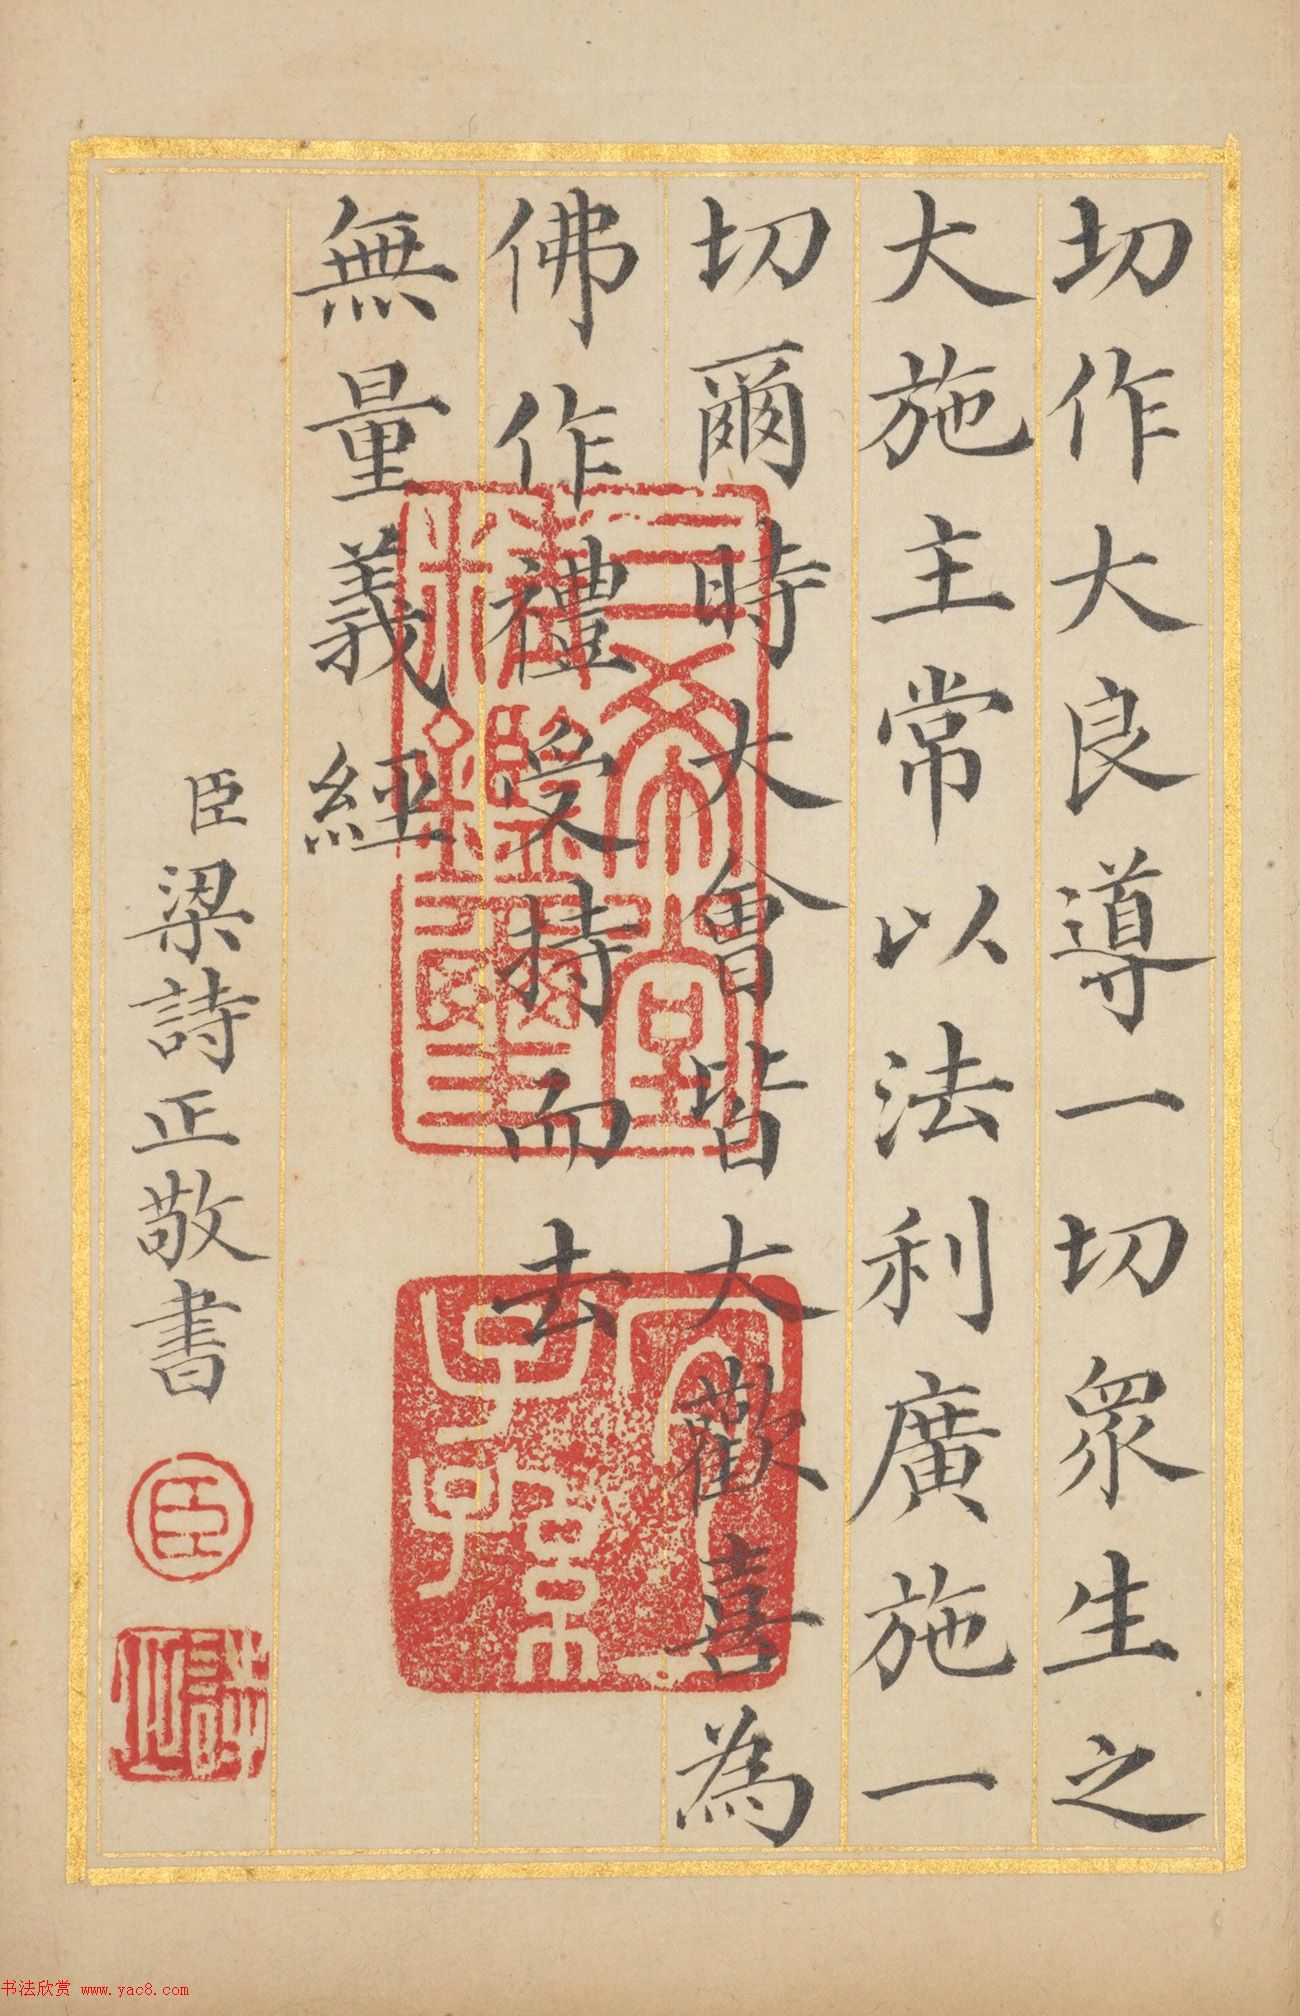 切作大良導一切眾生之
大施主常以法利廣施一
切爾時大會皆大歡喜為
佛作禮受持而去
無量義經
臣梁詩正敬書
臣
詩正
三希堂精鑑璽
宜子孫
书法欣赏 www.yac8.com